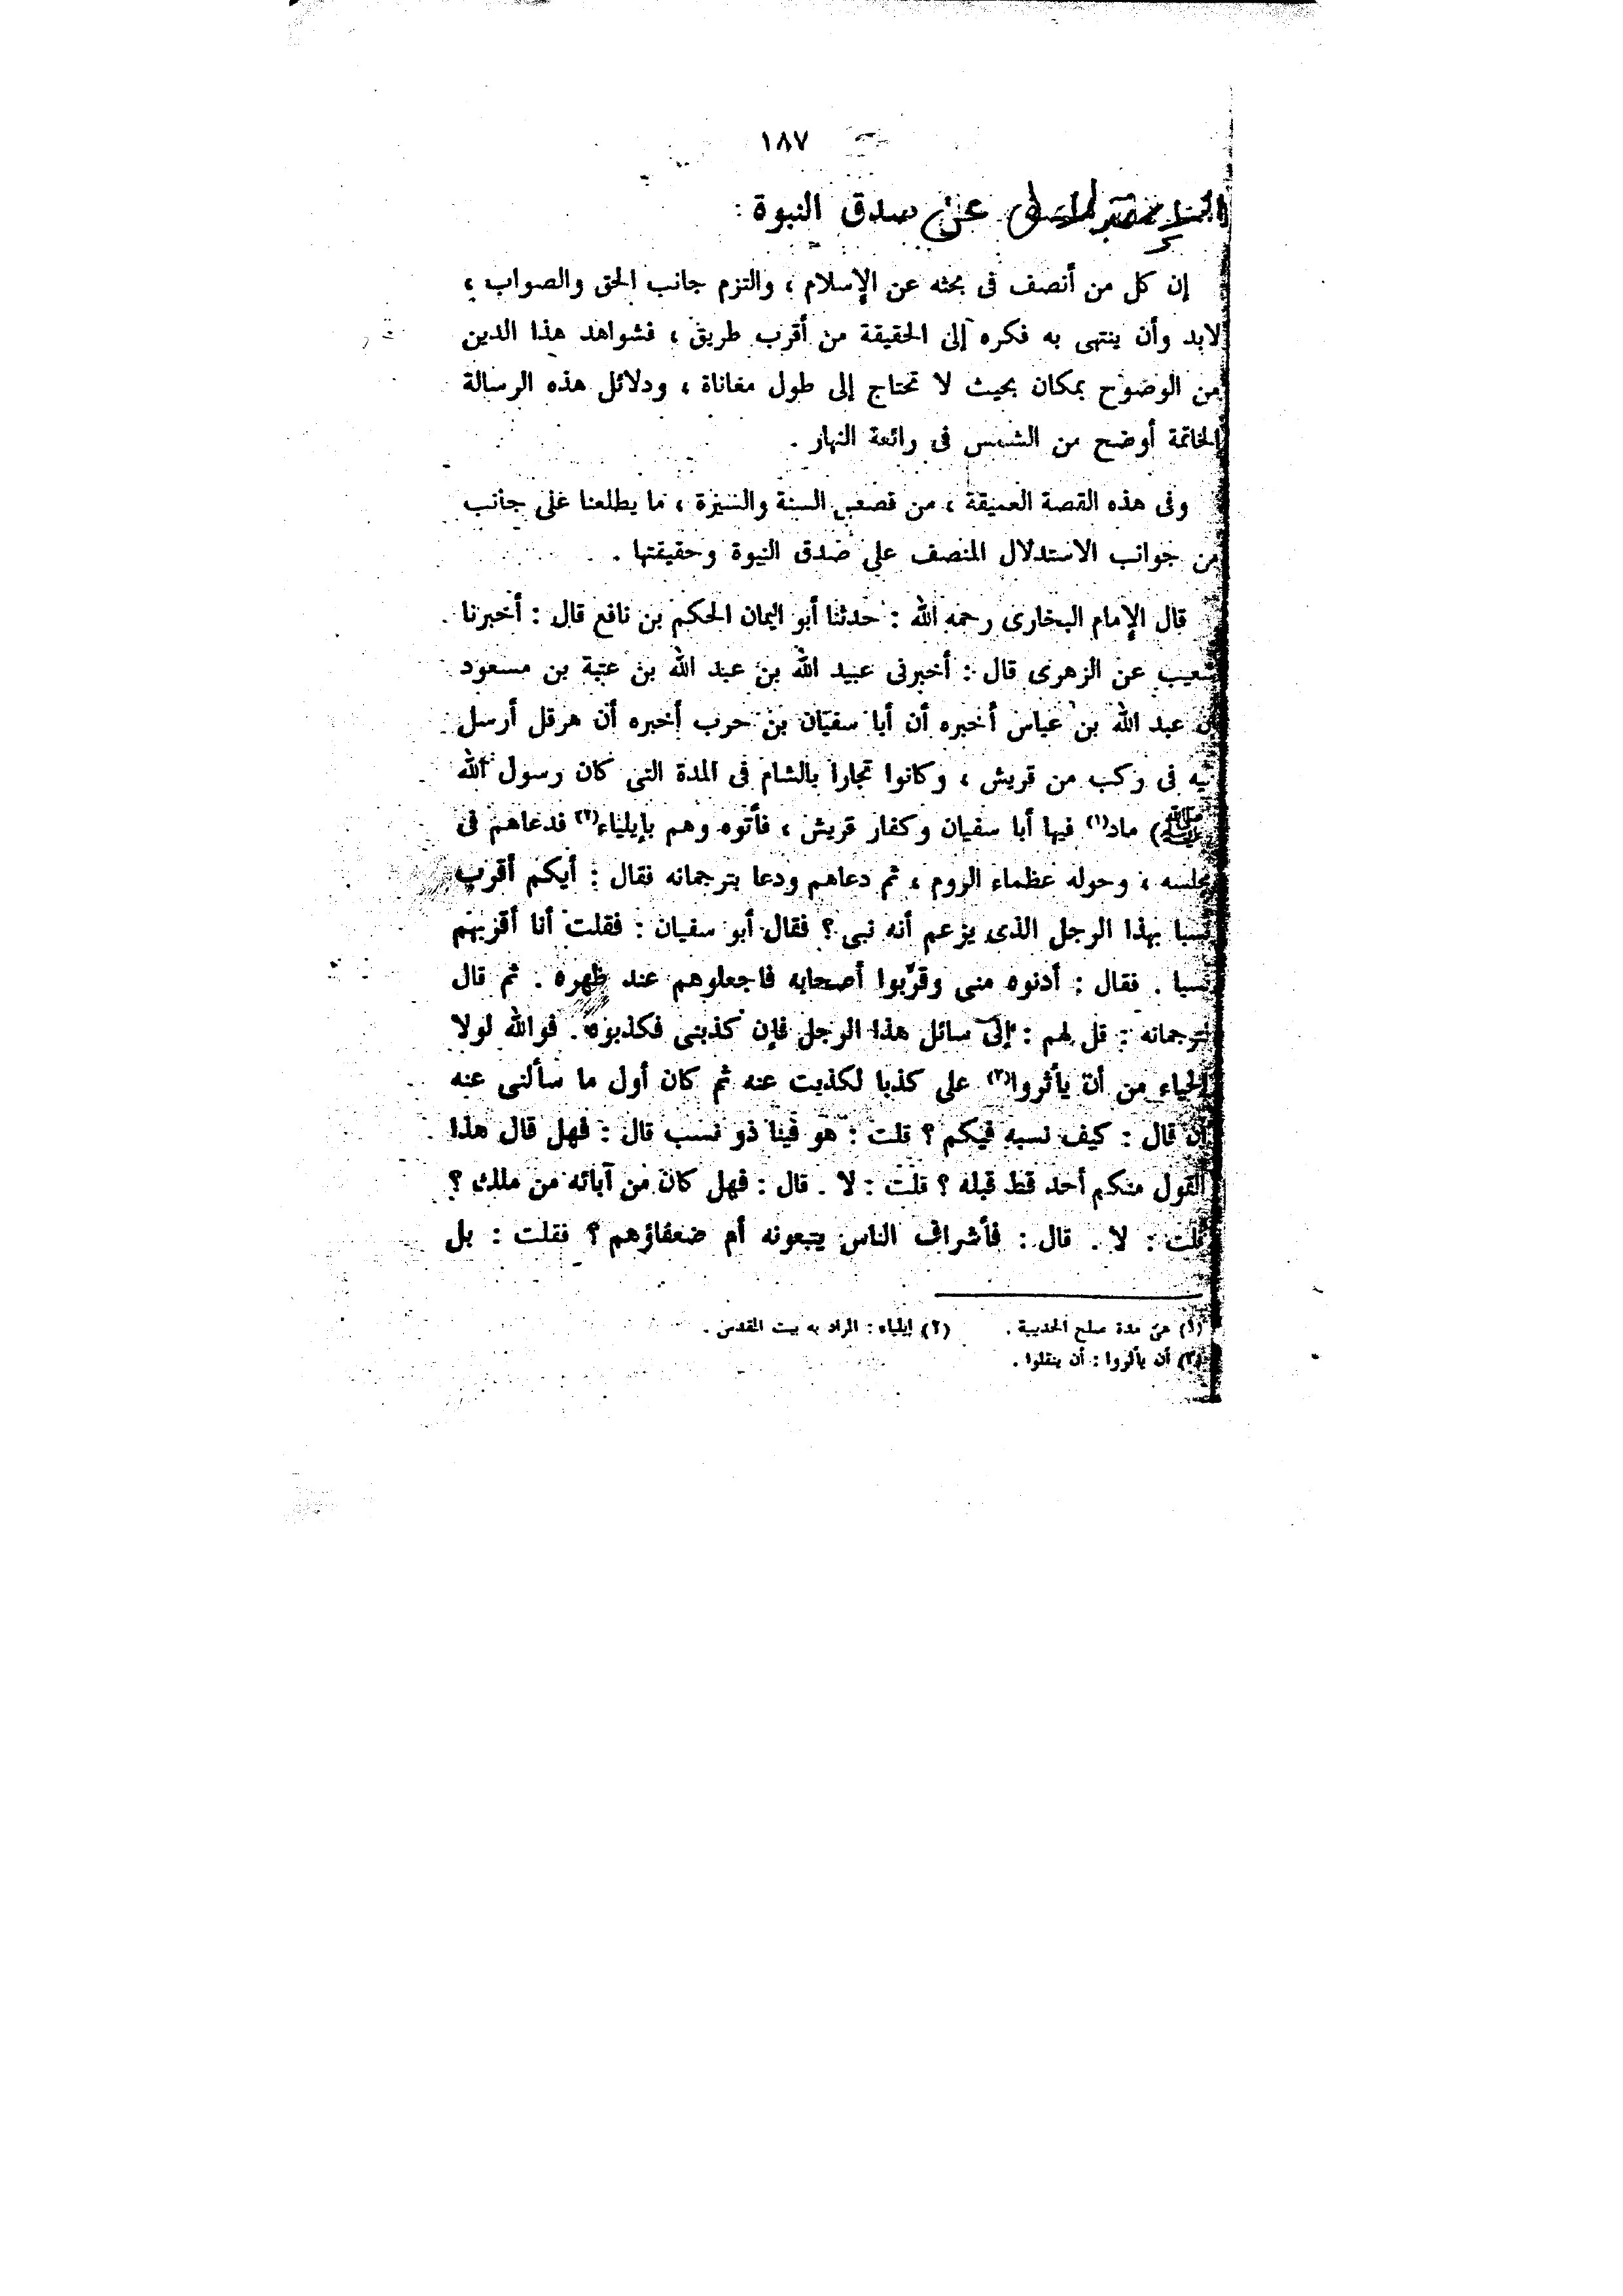 ١٨٧
عن صدق النبوة :
إن كل من أنصف فى بحثه عن الإسلام ، والتزم جانب الحق والصواب ،
لابد وأن ينتهى به فكره إلى الحقيقة من أقرب طريق ، فشواهد هذا الدين
من الوضوح بمكان بحيث لا تحتاج إلى طول معاناة ، ودلائل هذه الرسالة
الخاتمة أوضح من الشمس فى رائعة النهار .
وفى هذه القصة العميقة ، من قصص السنة والسيرة ، ما يطلعنا على جانب
من جوانب الاستدلال المنصف على صدق النبوة وحقيقتها .
قال الإمام البخارى رحمه الله : حدثنا أبو اليمان الحكم بن نافع قال : أخبرنا
شعيب عن الزهرى قال : أخبرنى عبيد الله بن عبد الله بن عتبة بن مسعود
أن عبد الله بن عباس أخبره أن أبا سفيان بن حرب أخبره أن هرقل أرسل
إليه فى ركب من قريش ، وكانوا تجارا بالشام فى المدة التى كان رسول الله
(ﷺ) ماد(١) فيها أبا سفيان وكفار قريش ، فأتوه وهم بإيلياء(٢) فدعاهم فى
مجلسه ، وحوله عظماء الروم ، ثم دعاهم ودعا بترجمانه فقال : أيكم أقرب
نسبا بهذا الرجل الذى يزعم أنه نبى ؟ فقال أبو سفيان : فقلت أنا أقربهم
نسبا . فقال : أدنوه منى وقرّبوا أصحابه فاجعلوهم عند ظهره . ثم قال
لترجمانه : قل لهم : إنى سائل هذا الرجل فإن كذبنى فكذبوه . فوالله لولا
الحياء من أن يأثروا(٣) على كذبا لكذبت عنه ثم كان أول ما سألنى عنه
أن قال : كيف نسبه فيكم ؟ قلت : هو فينا ذو نسب قال : فهل قال هذا
القول منكم أحد قط قبله ؟ قلت : لا . قال : فهل كان من آبائه من ملك ؟
قلت : لا . قال : فأشراف الناس يتبعونه أم ضعفاؤهم ؟ فقلت : بل
(١) هى مدة صلح الحديبية . (٢) إيلياء : المراد به بيت المقدس .
(٣) أن يأثروا : أن ينقلوا .